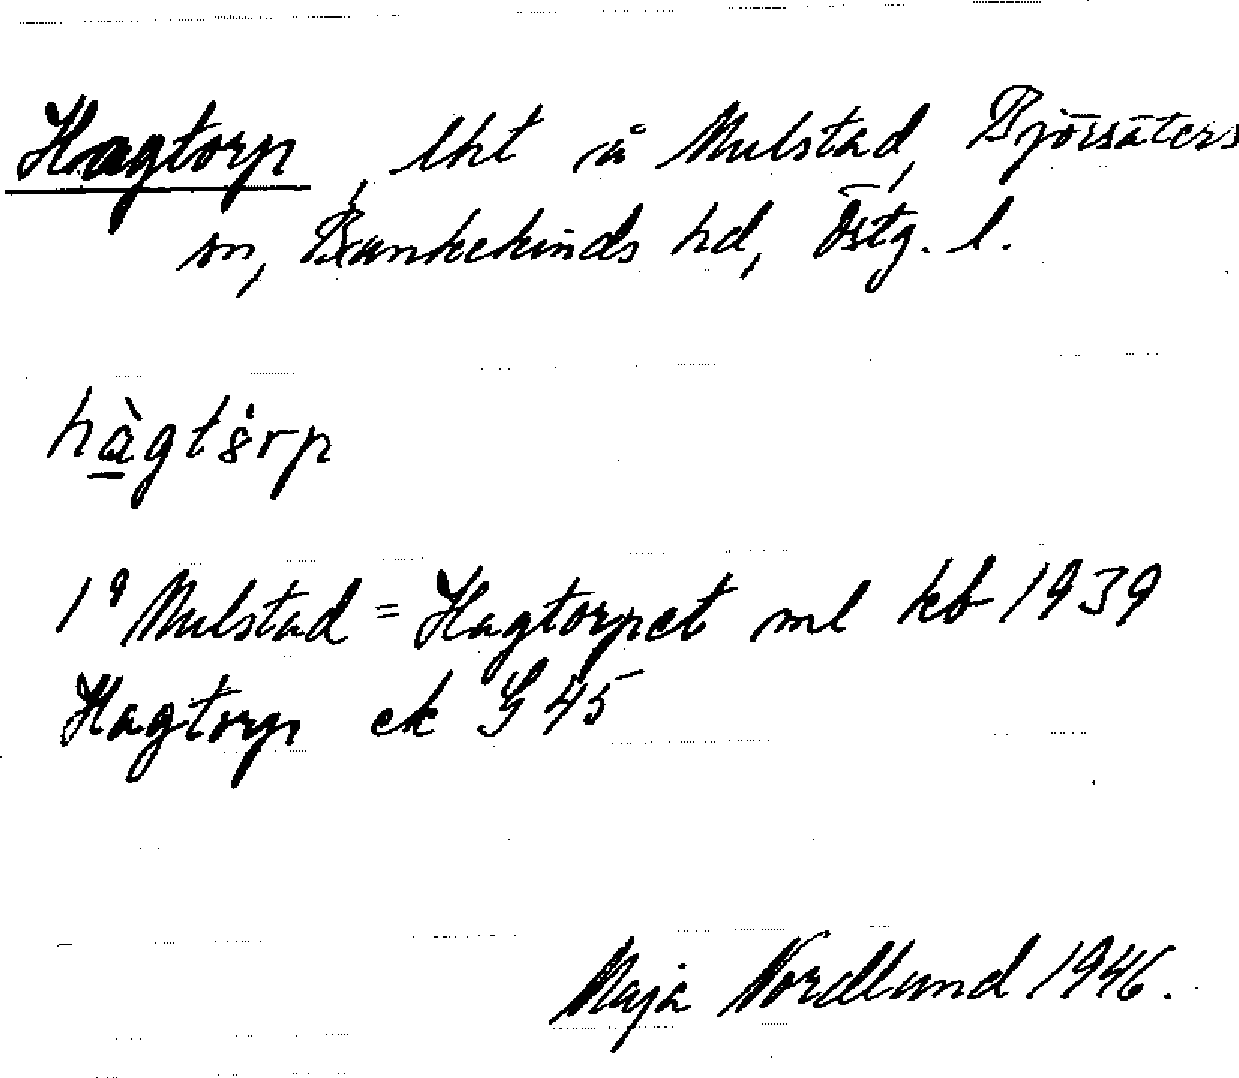 Hagtorp, lht å Mulstad, Björsäters
sn, Bankekinds hd, Östg. l.
hàgtȯrp
1⁹ Mulstad = Hagtorpet ml kb 1939
Hagtorp ek G 45
Maja Nordlund 1946.